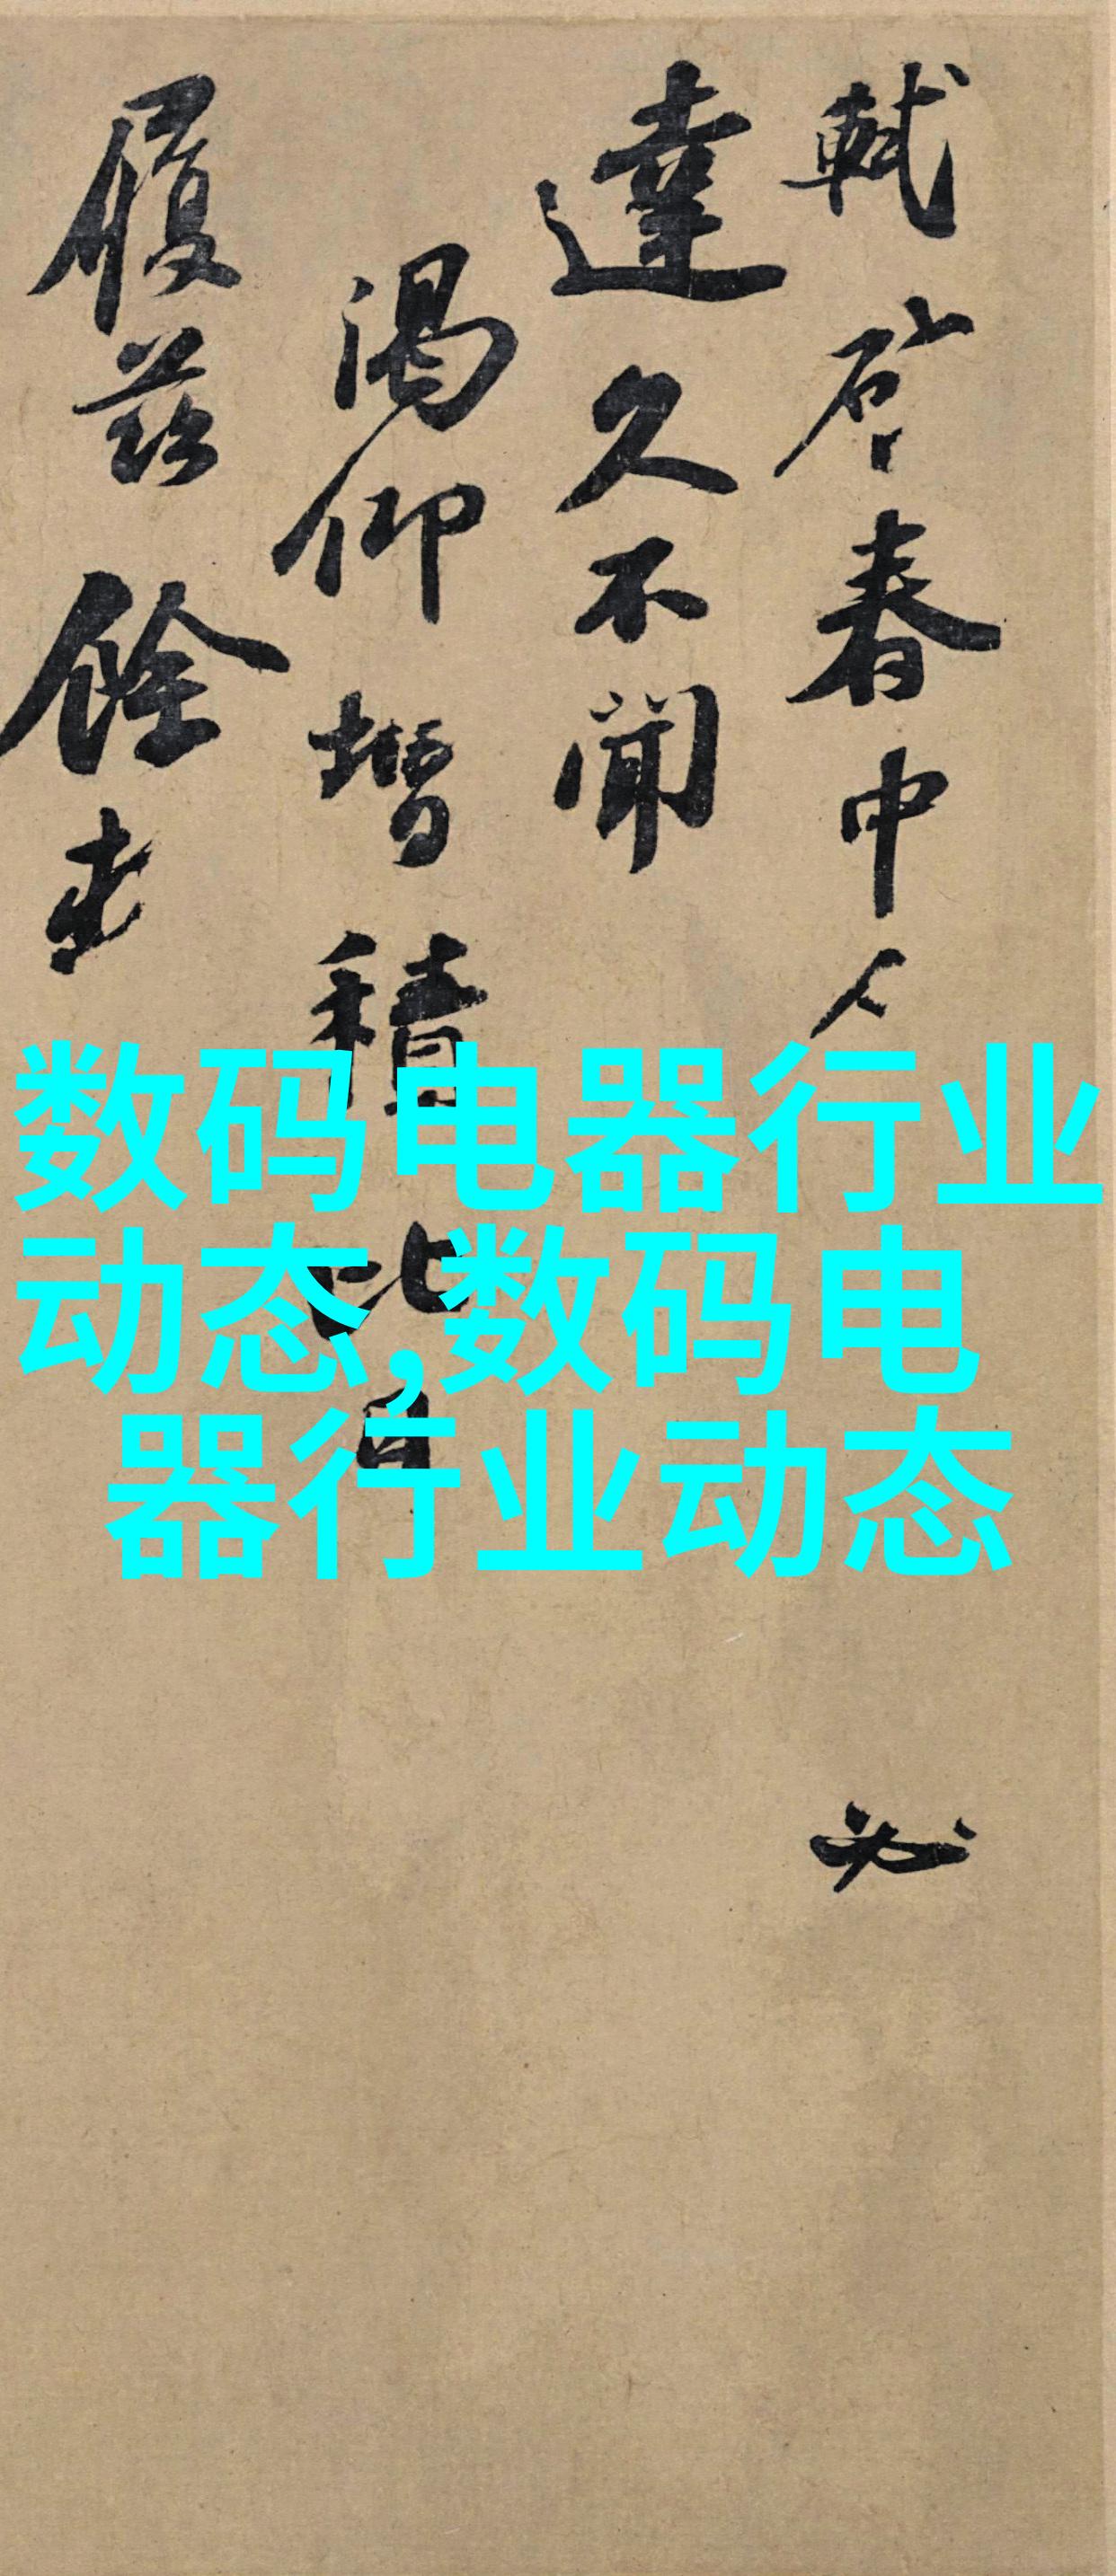 軾啓春中人必
達久不聞
渴仰增積比日
履茲餘
数码电器行业
动态,数码电
器行业动态